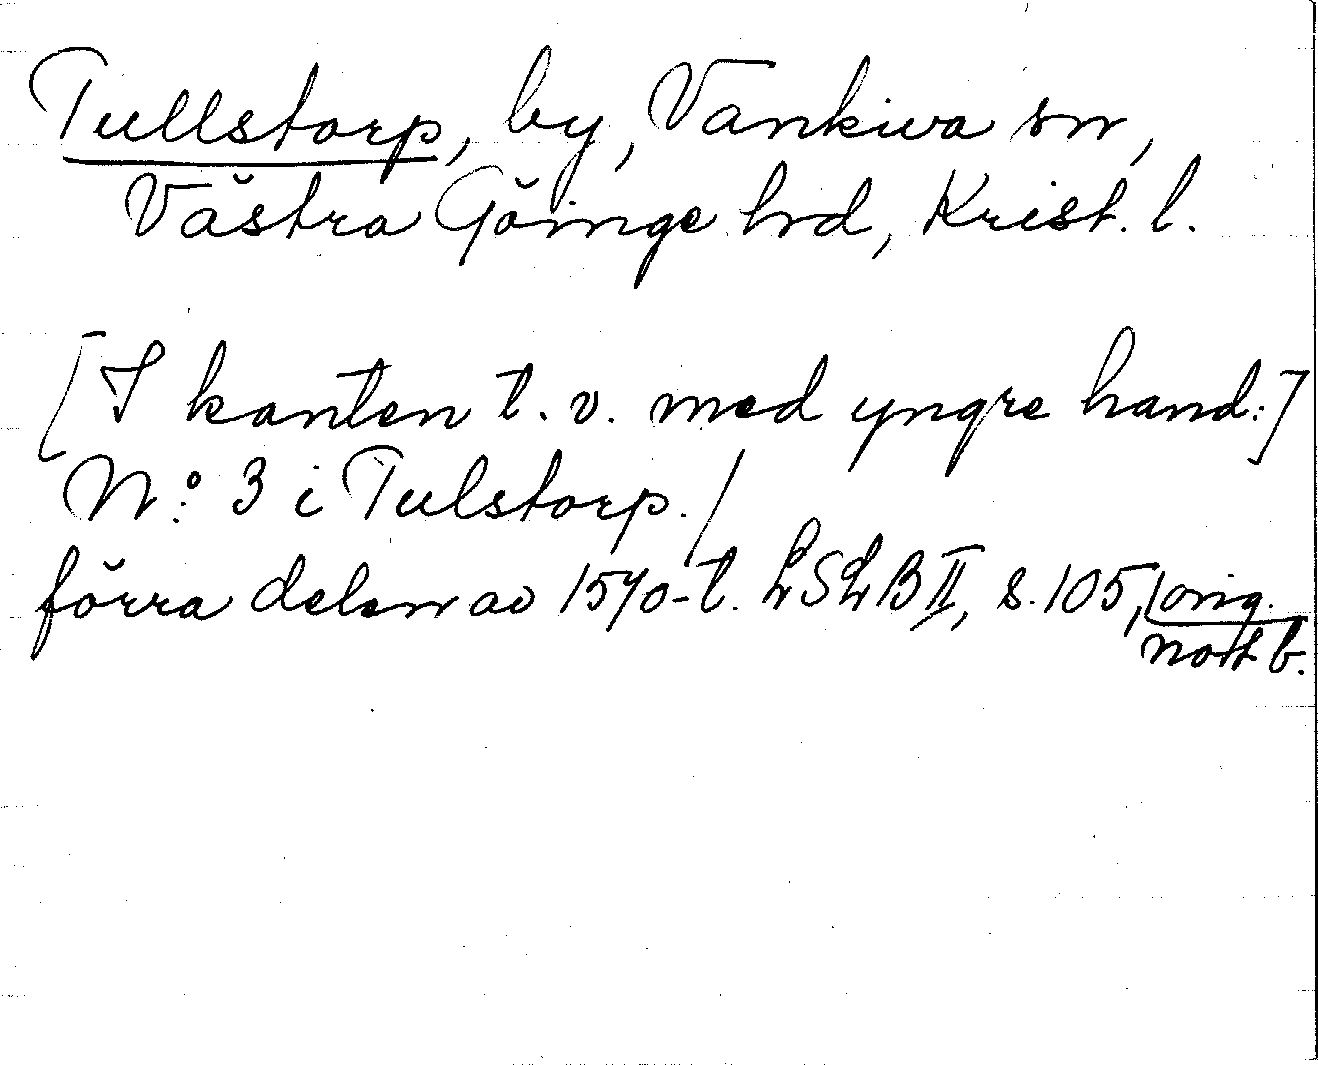 Tullstorp, by, Vankiva sn,
Västra Göinge hrd, Krist. l.
[I kanten t. v. med yngre hand:]
N:o 3 i Tulstorp. /
förra delen av 1570-t. LSLB II, s. 105, orig.
not b.